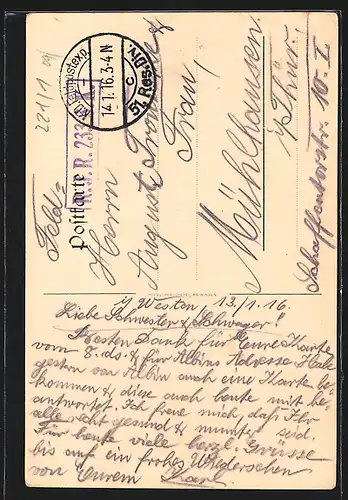 221/1 09
Kgl. Feldpostexp.
14.1.16. 3-4 N
c
51. Res.-Div.
R.J.R. 233
Feld=
Postkarte
Herrn
August
Frau!
Mühlhausen
i/Thür.
10. I
i/ Westen 13/1. 16.
Liebe Schwester & Schwager!
Besten Dank für Eure Karte
vom 8. ds. & für Albins Adresse. Habe
gestern von Albin auch eine Karte be-
kommen & diese auch heute mit be-
antwortet. Ich freue mich, daß Ihr
alle recht gesund & munter seid.
Für heute viele herzl. Grüsse
bis auf ein frohes Wiedersehen
von Eurem Karl